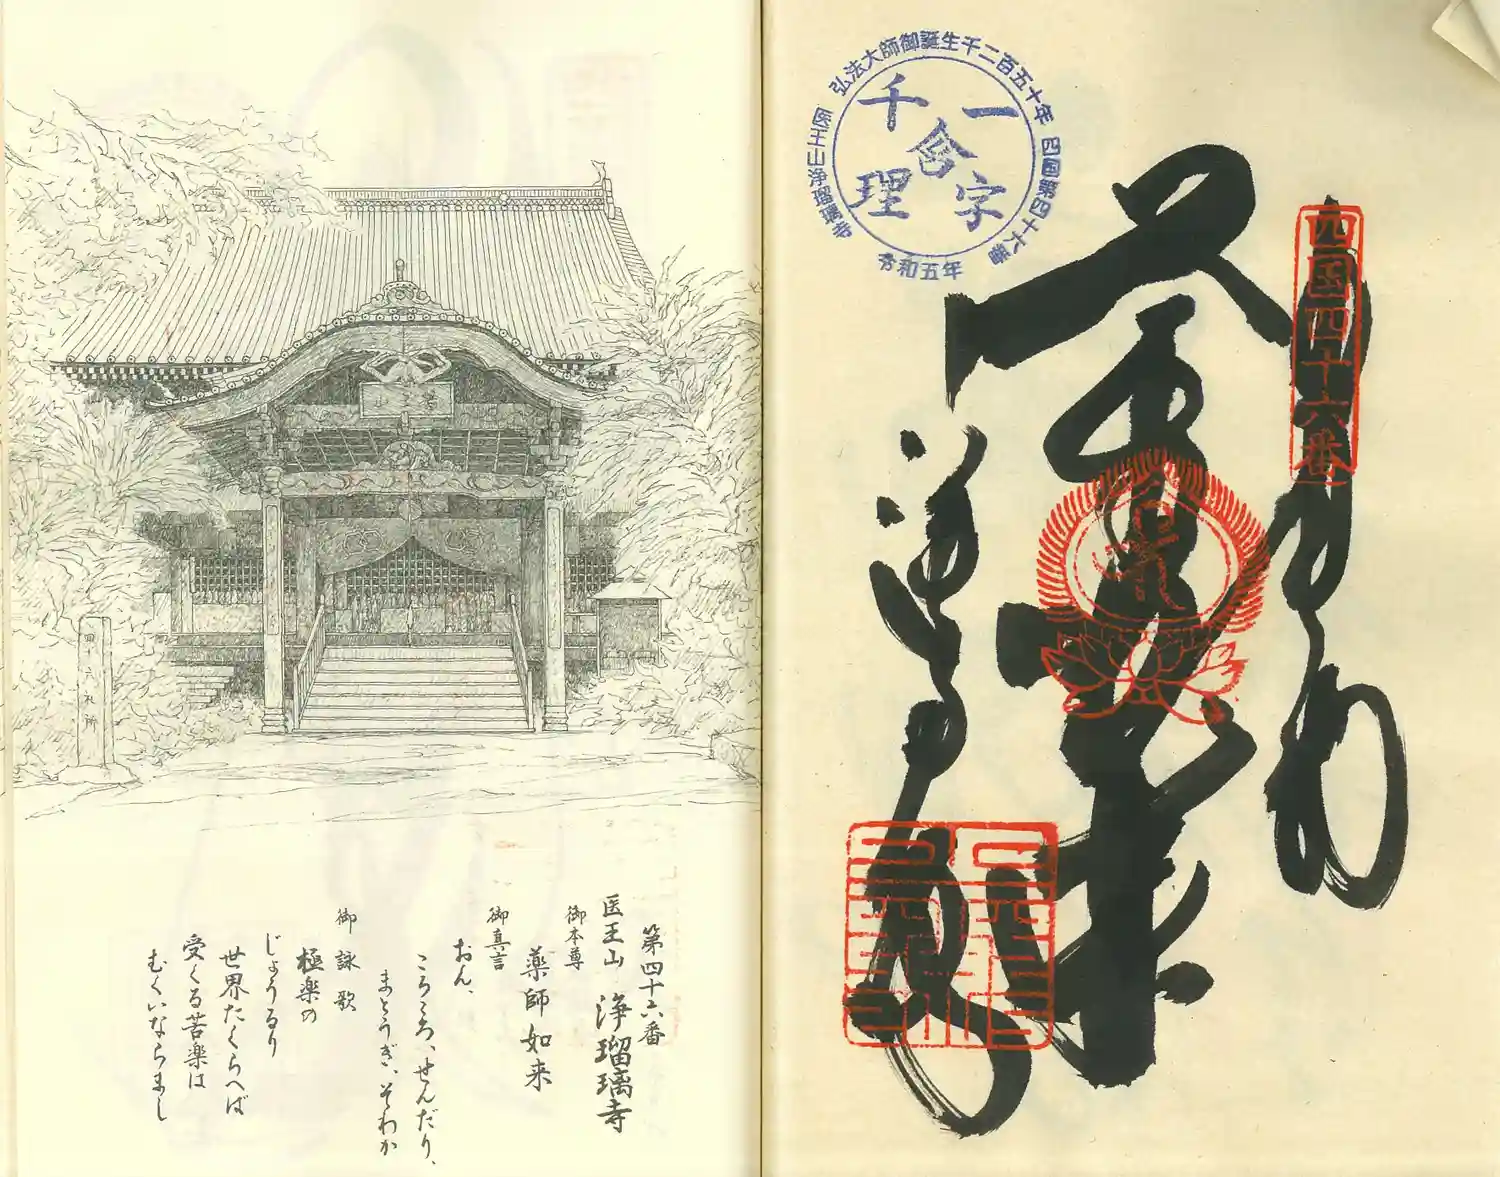 弘法大師御誕生千二百五十年
四国第四十六番
医王山浄瑠璃寺
令和五年
一字含千理
四国四十六番
奉納
浄瑠璃寺
四六札所
第四十六番
医王山 浄瑠璃寺
御本尊
薬師如来
御真言
おん、
ころころ、せんだり、
まとうぎ、そわか
御詠歌
極楽の
じょうるり
世界たくらへば
受くる苦楽は
むくいならまし